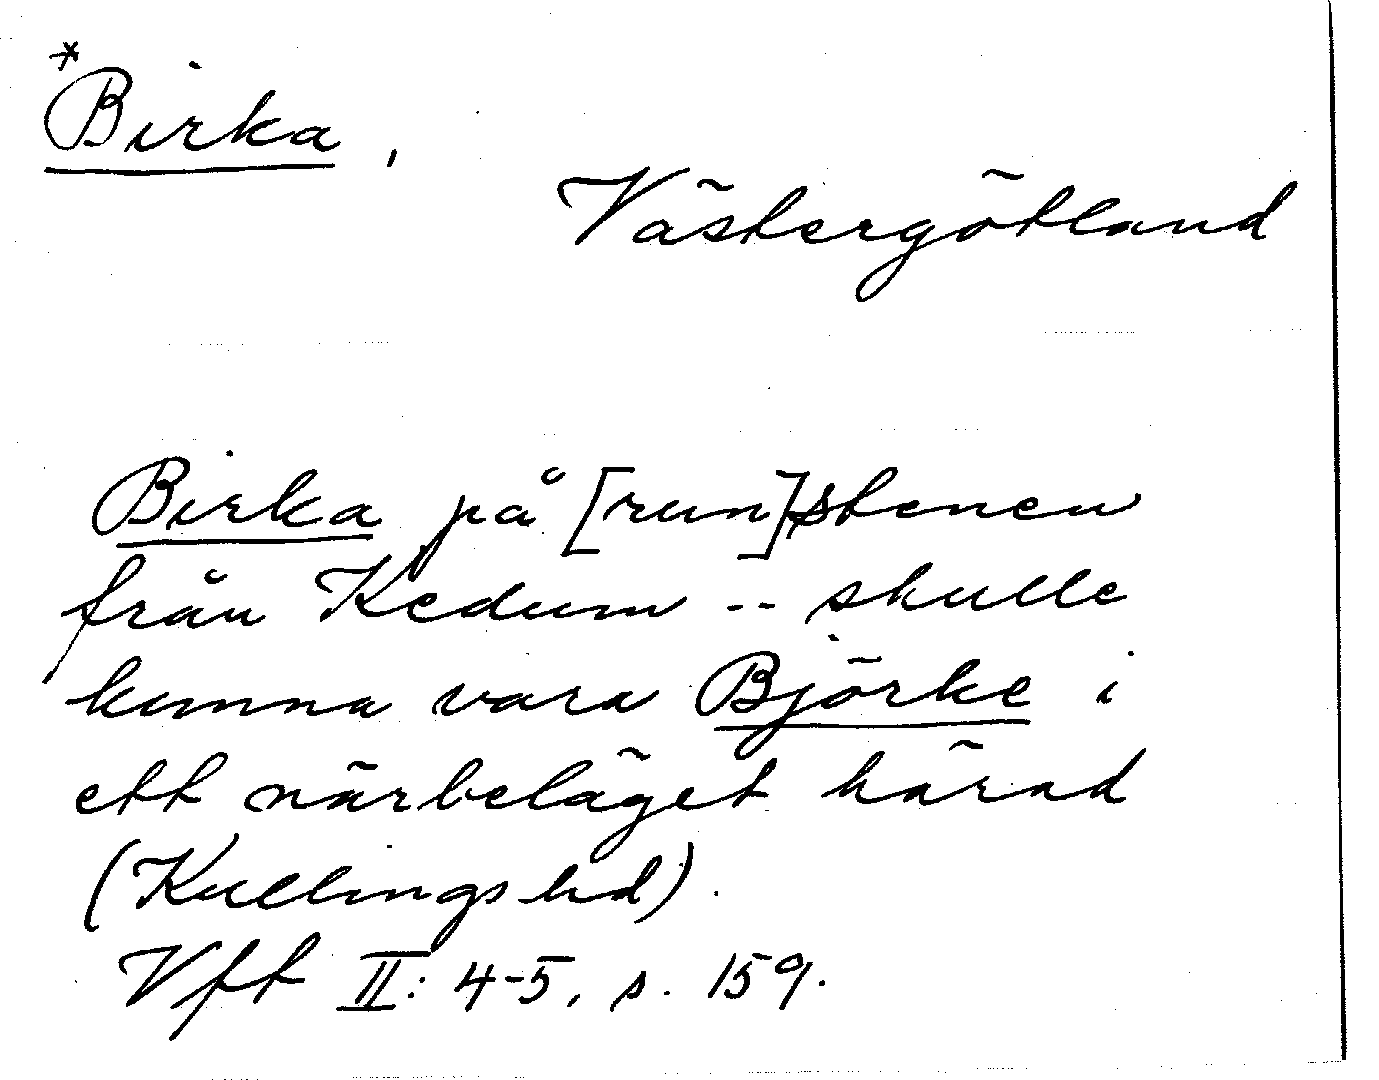 *Birka,
Västergötland
Birka på [run]stenen
från Kedum -- skulle
kunna vara Björke i
ett närbeläget härad
(Kullings hd).
Vft II: 4-5, s. 159.